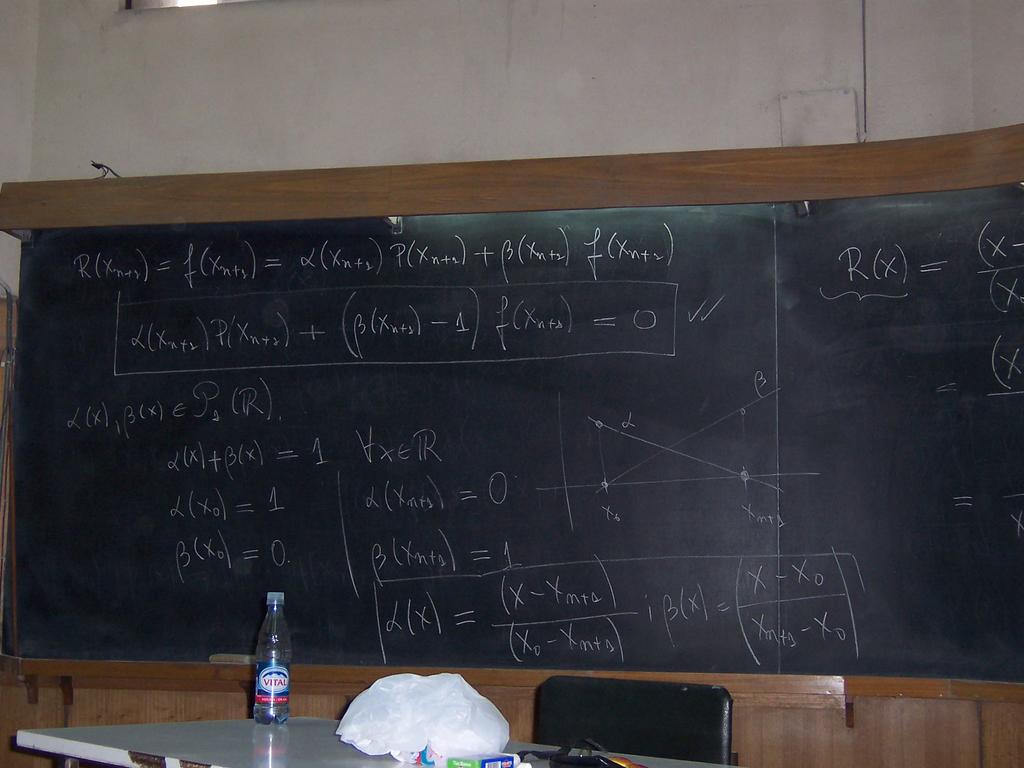 R(x_{n+1}) = f(x_{n+1}) = α(x_{n+1}) P(x_{n+1}) + β(x_{n+1}) f(x_{n+1})
α(x_{n+1}) P(x_{n+1}) + (β(x_{n+1}) - 1) f(x_{n+1}) = 0 ✓✓
α(x), β(x) ∈ P_1(ℝ).
α(x) + β(x) = 1 ∀x∈ℝ
α(x_0) = 1 α(x_{n+1}) = 0
β(x_0) = 0. β(x_{n+1}) = 1
α(x) = (x - x_{n+1}) / (x_0 - x_{n+1}) ; β(x) = (x - x_0) / (x_{n+1} - x_0)
α
β
x_0
x_{n+1}
R(x) = (x - / (x_0
= (x
=
VITAL